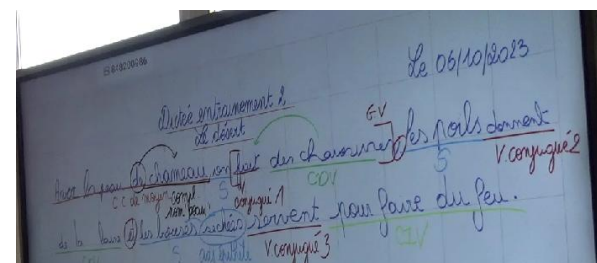 Le 06/10/2023
Dictée entrainement 2
Le désert
G.V
Avec la peau de chameau, on fait des chaussures, les poils donnent
C.C de moyen compl nom peau S V conjugué 1 COD S V conjugué 2
de la laine et les bouses séchées servent pour faire du feu.
COD S V conjugué 3